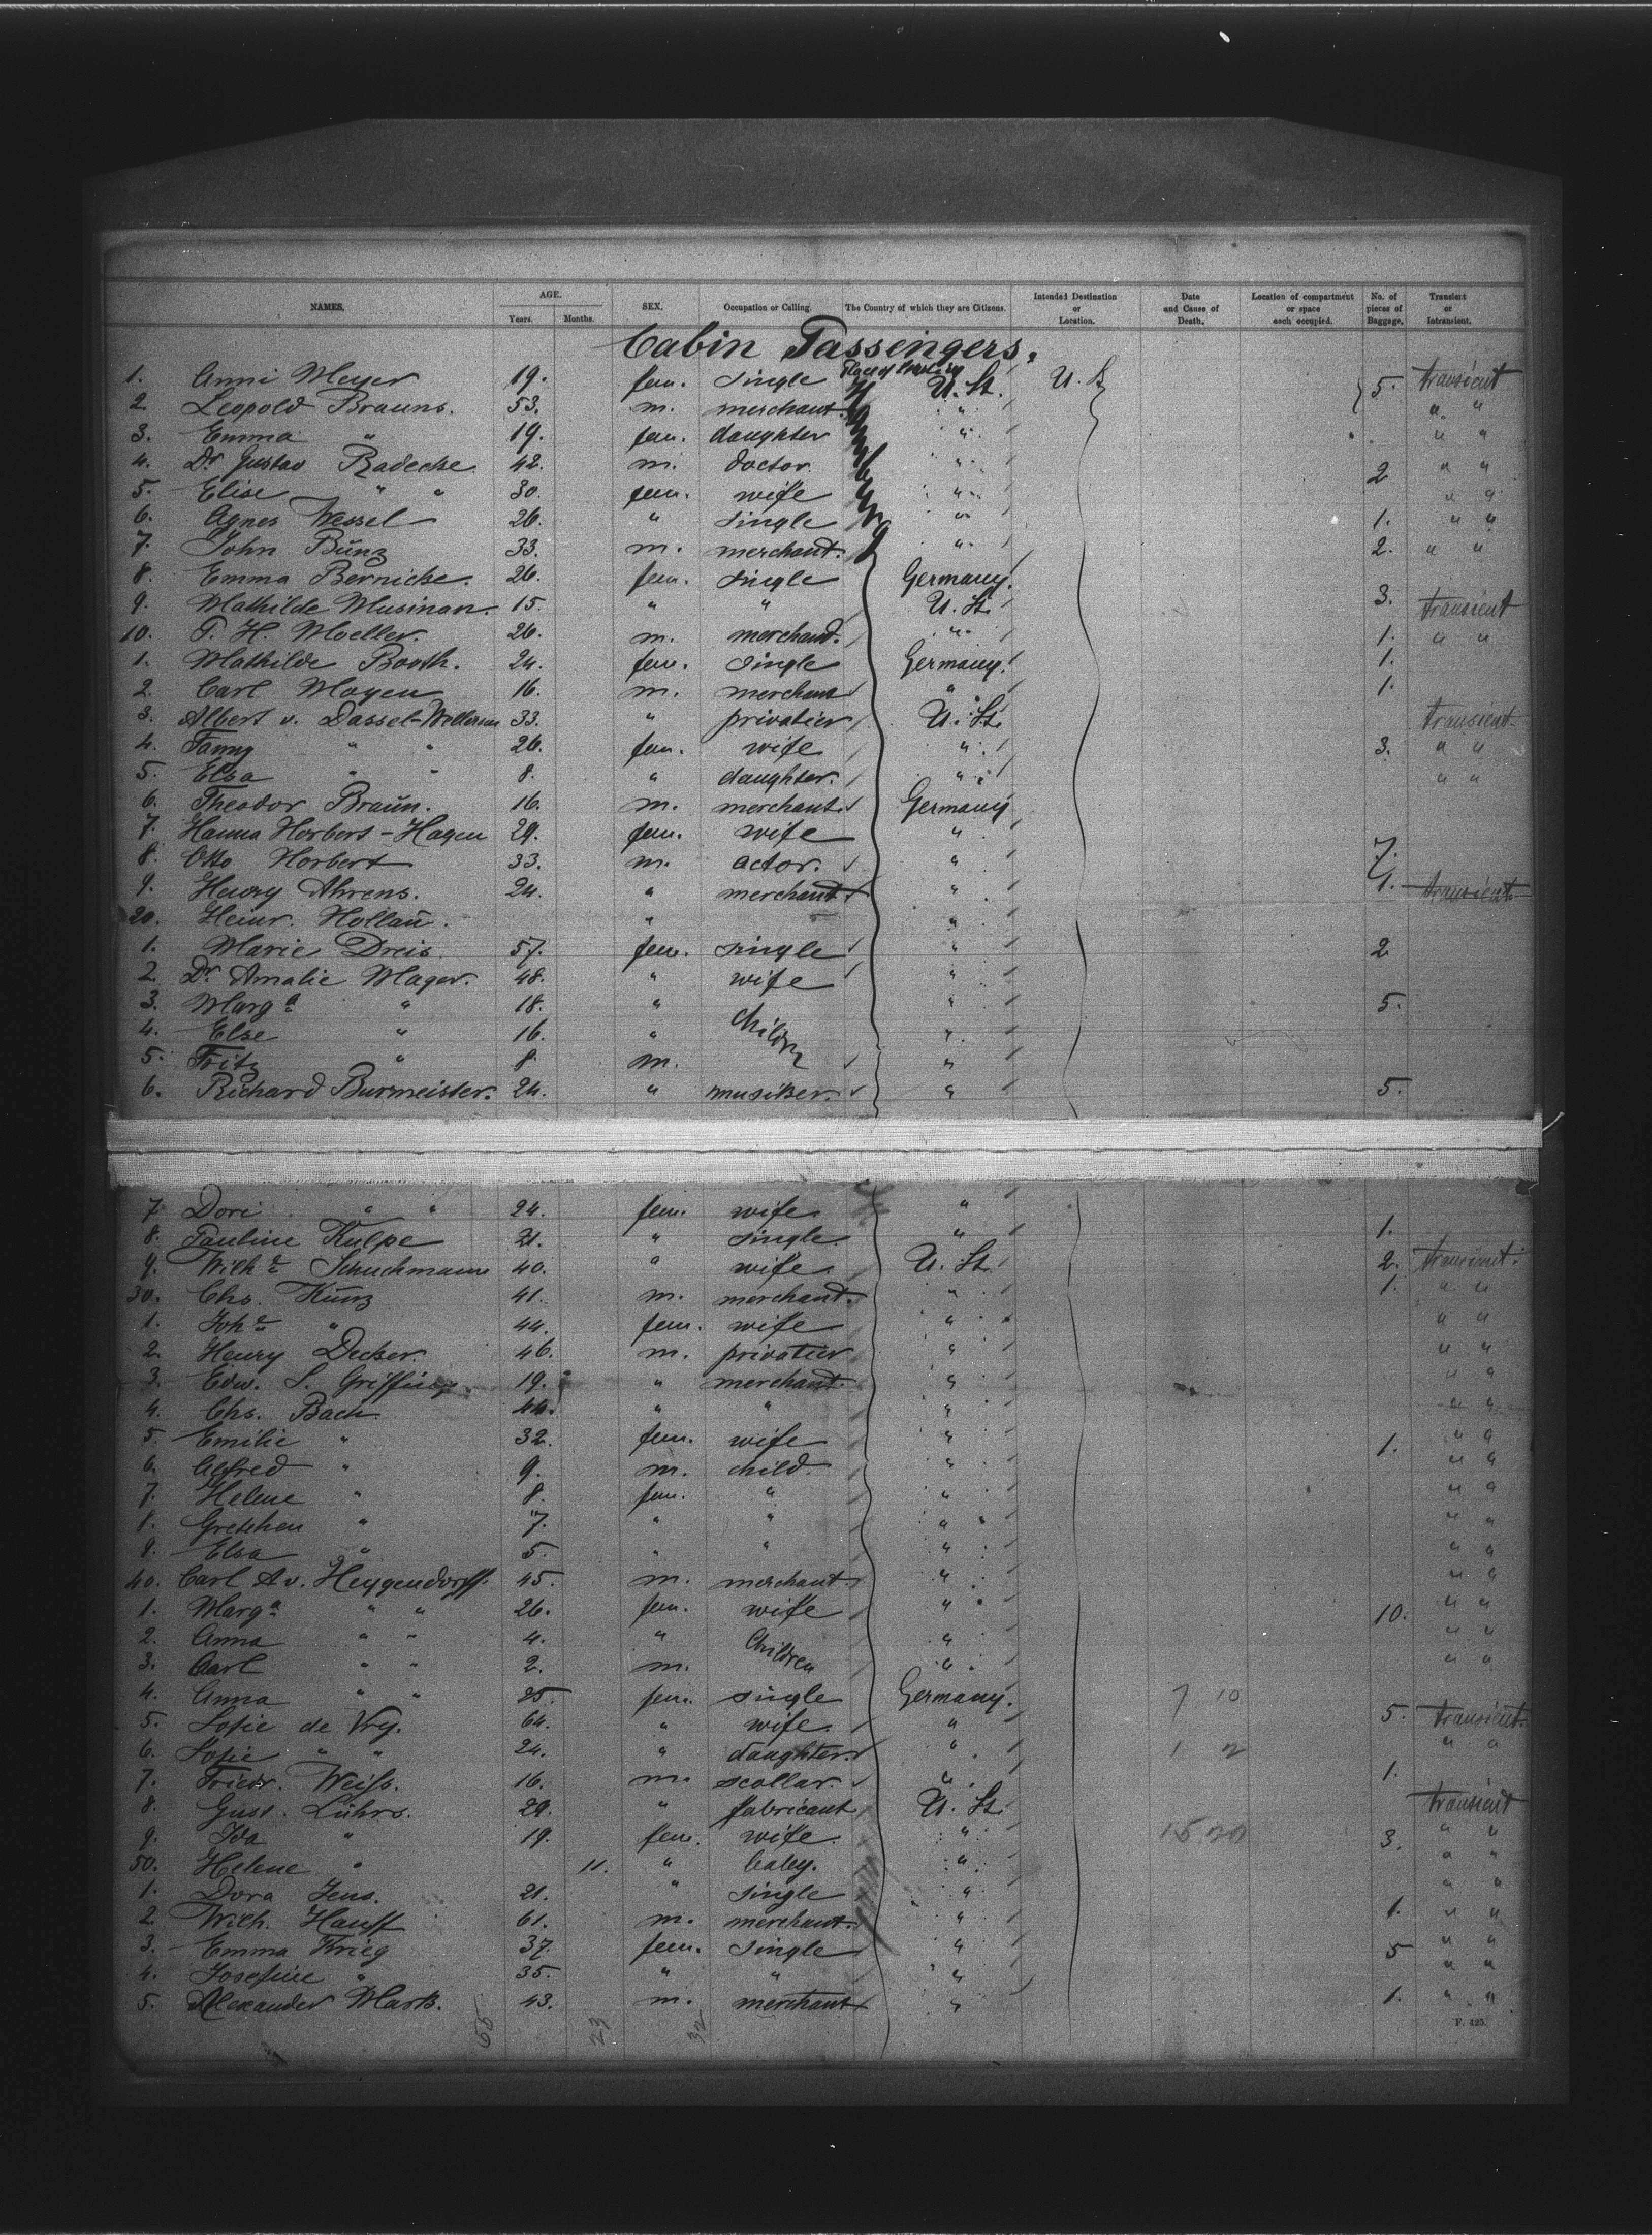 NAMES. AGE. SEX. Occupation or Calling. The Country of which they are Citizens. Intended Destination or Location. Date and Cause of Death. Location of compartment or space each occupied. No. of pieces of Baggage. Transient or Intransient.
Years. Months.
Cabin Passengers.
1. Anni Meyer 19. fem. single U. St. U. St. 5. transient
2. Leopold Brauns. 53. m. merchant. " " "
3. Emma " 19. fem. daughter " " "
4. Dr. Gustav Radecke 42. m. doctor. " 2 " "
5. Elise " " 30. fem. wife " " "
6. Agnes Wessel 26. " single " 1. " "
7. John Bünz 33. m. merchant. " 2. " "
Hamburg
8. Emma Bernicke. 26. fem. single Germany.
9. Mathilde Musinan. 15. " " U. St. 3. transient
10. P. H. Moeller. 26. m. merchand. " 1. " "
1. Mathilde Booth. 24. fem. single Germany. 1.
2. Carl Moyen 16. m. merchant " 1.
3. Albert v. Dassel- 33. " privatier U. St. transient
4. Fanny " " 26. fem. wife " 3. " "
5. Elsa " " 8. " daughter. " " "
6. Theodor Braun. 16. m. merchant. Germany
7. Hanna Horbert-Hagen 29. fem. wife "
8. Otto Horbert 33. m. actor. " 7.
9. Henry Ahrens. 24. " merchant " 1. transient
20. Heinr. Hollaü. " "
1. Marie Dreis 57. fem. single " 2
2. Dr. Amalie Mager. 48. " wife "
3. Marga " 18. " children " 5.
4. Else " 16. " "
5. Fritz " 8 m. "
6. Richard Burmeister. 24. " musiker. " 5.
7. Dori " " 24. fem. wife "
8. Pauline Kulpe 21. " single " 1.
9. Wilhe Schuchmann 40. " wife U. St. 2. transient.
30. Chs. Künz 41. m. merchand. " 1. " "
1. Johe " 44. fem. wife " " "
2. Henry Decker. 46. m. privatier " " "
3. Edw. S. Griffing. 19. " merchant " " "
4. Chs. Bach 44. " " " " "
5. Emilie " 32. fem. wife " 1. " "
6. Alfred " 9. m. child. " " "
7. Helene " 8. fem. " " " "
8. Gretchen " 7. " " " " "
9. Elsa " 5. " " " " "
40. Carl A v. Heygendorff. 45. m. merchant. " " "
1. Marga " " 26. fem. wife " 10. " "
2. Anna " " 4. " Children " " "
3. Carl " " 2. m. " " "
4. Anna " " 25. fem. single Germany. 7 10
5. Sofie de Vry. 64. " wife. " 5. transient.
6. Sofie " " 24. " daughter. " 1 2 " "
7. Friedr. Weiss. 16. m. scollar. " 1.
8. Gust. Lührs. 29. " fabricant U. St. transient
9. Ida " 19. fem. wife. " 15 20 3. " "
50. Helene " 11. " baby. " " "
1. Dora Jens. 21. " single " " "
2. Wilh. Hauff 61. m. merchant. " 1. " "
3. Emma Krieg 37. fem. single " 5 " "
4. Josefine " 35. " " " " "
5. Alexander Mark. 43. m. merchant " 1. " "
55 23 32
F. 425.